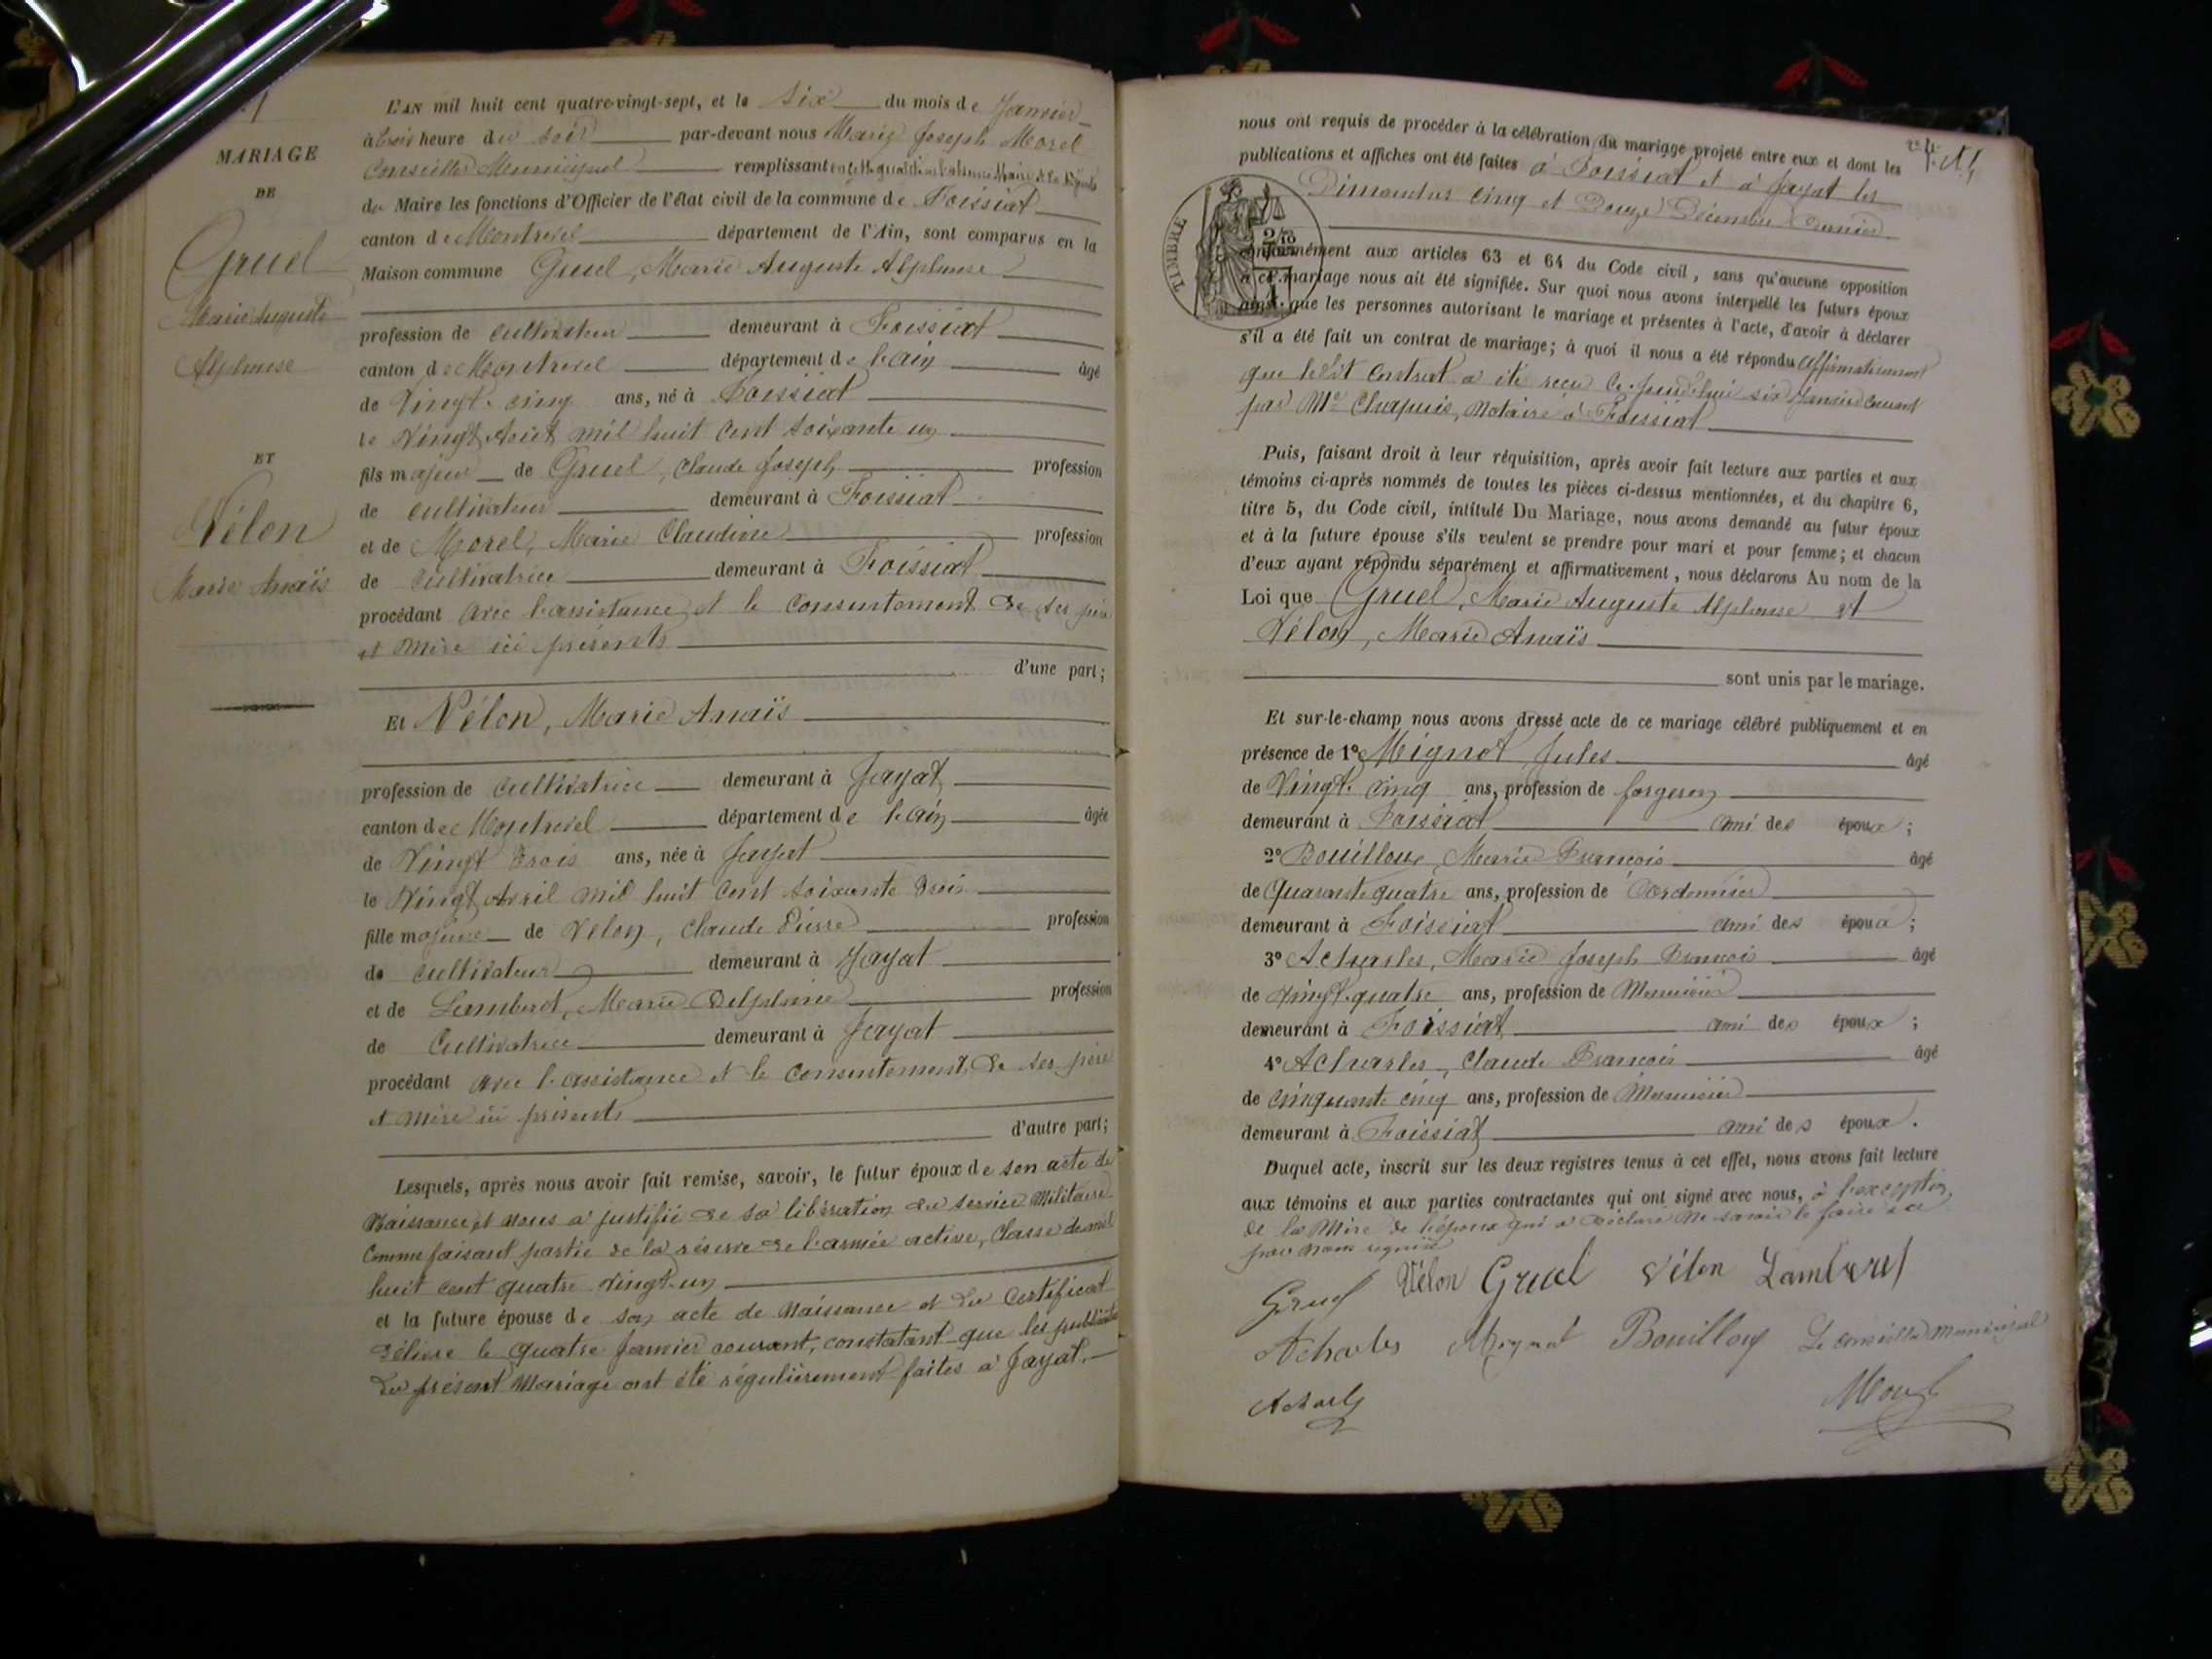 MARIAGE
DE
Gruel
Marie Auguste
Alphonse
ET
Vélon
Marie Anaïs
L'AN mil huit cent quatre-vingt-sept, et le six du mois de Janvier
à trois heure du soir par-devant nous Marie Joseph Morel
Conseiller Municipal remplissant en cette qualité en l'absence du Maire et de l'Adjoint
du Maire les fonctions d'Officier de l'état civil de la commune de Foissiat
canton de Montrevel département de l'Ain, sont comparus en la
Maison commune Gruel, Marie Auguste Alphonse
profession de cultivateur demeurant à Foissiat
canton de Montrevel département de l'Ain âgé
de Vingt-cinq ans, né à Foissiat
le Vingt Août mil huit cent soixante un
fils majeur de Gruel, Claude Joseph profession
de cultivateur demeurant à Foissiat
et de Morel, Marie Claudine profession
de Cultivatrice demeurant à Foissiat
procédant avec l'assistance et le consentement de ses père
et mère ici présents
d'une part;
Et Vélon, Marie Anaïs
profession de Cultivatrice demeurant à Jayat
canton de Montrevel département de l'Ain âgée
de Vingt trois ans, née à Jayat
le Vingt Avril mil huit cent soixante trois
fille majeure de Vélon, Claude Pierre profession
de cultivateur demeurant à Jayat
et de Lambert, Marie Delphine profession
de Cultivatrice demeurant à Jayat
procédant avec l'assistance et le consentement de ses père
et mère ici présents
d'autre part;
Lesquels, après nous avoir fait remise, savoir, le futur époux de son acte de
Naissance et nous a justifié de sa libération du service Militaire
comme faisant partie de la réserve de l'armée active, Classe de mil
huit cent quatre vingt-un
et la future épouse de son acte de Naissance et du Certificat
délivré le quatre Janvier courant, constatant que les publications
du présent Mariage ont été régulièrement faites à Jayat.
nous ont requis de procéder à la célébration du mariage projeté entre eux et dont les
publications et affiches ont été faites à Foissiat et à Jayat les
Dimanches cinq et Douze Décembre dernier
TIMBRE
conformément aux articles 63 et 64 du Code civil, sans qu'aucune opposition
à ce mariage nous ait été signifiée. Sur quoi nous avons interpellé les futurs époux
ainsi que les personnes autorisant le mariage et présentes à l'acte, d'avoir à déclarer
s'il a été fait un contrat de mariage; à quoi il nous a été répondu affirmativement
que ledit Contrat a été reçu ce jourd'hui six Janvier courant
par Me Chapuis, Notaire à Foissiat
Puis, faisant droit à leur réquisition, après avoir fait lecture aux parties et aux
témoins ci-après nommés de toutes les pièces ci-dessus mentionnées, et du chapitre 6,
titre 5, du Code civil, intitulé Du Mariage, nous avons demandé au futur époux
et à la future épouse s'ils veulent se prendre pour mari et pour femme; et chacun
d'eux ayant répondu séparément et affirmativement, nous déclarons Au nom de la
Loi que Gruel, Marie Auguste Alphonse et
Vélon, Marie Anaïs
sont unis par le mariage.
Et sur-le-champ nous avons dressé acte de ce mariage célébré publiquement et en
présence de 1° Mignot Jules âgé
de Vingt-cinq ans, profession de forgeron
demeurant à Foissiat ami des époux;
2° Bouilloux Marie François âgé
de Quarante quatre ans, profession de Cordonnier
demeurant à Foissiat ami des époux;
3° Acharles, Marie Joseph François âgé
de Vingt-quatre ans, profession de Menuisier
demeurant à Foissiat ami des époux;
4° Acharles, Claude François âgé
de cinquante cinq ans, profession de Menuisier
demeurant à Foissiat ami des époux.
Duquel acte, inscrit sur les deux registres tenus à cet effet, nous avons fait lecture
aux témoins et aux parties contractantes qui ont signé avec nous, à l'exception
de la Mère de l'époux qui a déclaré ne savoir le faire de ce
par nous requise
Gruel Vélon Gruel Vélon Lambert
Acharles Mignot Bouilloux Le conseiller municipal
Acharles Morel